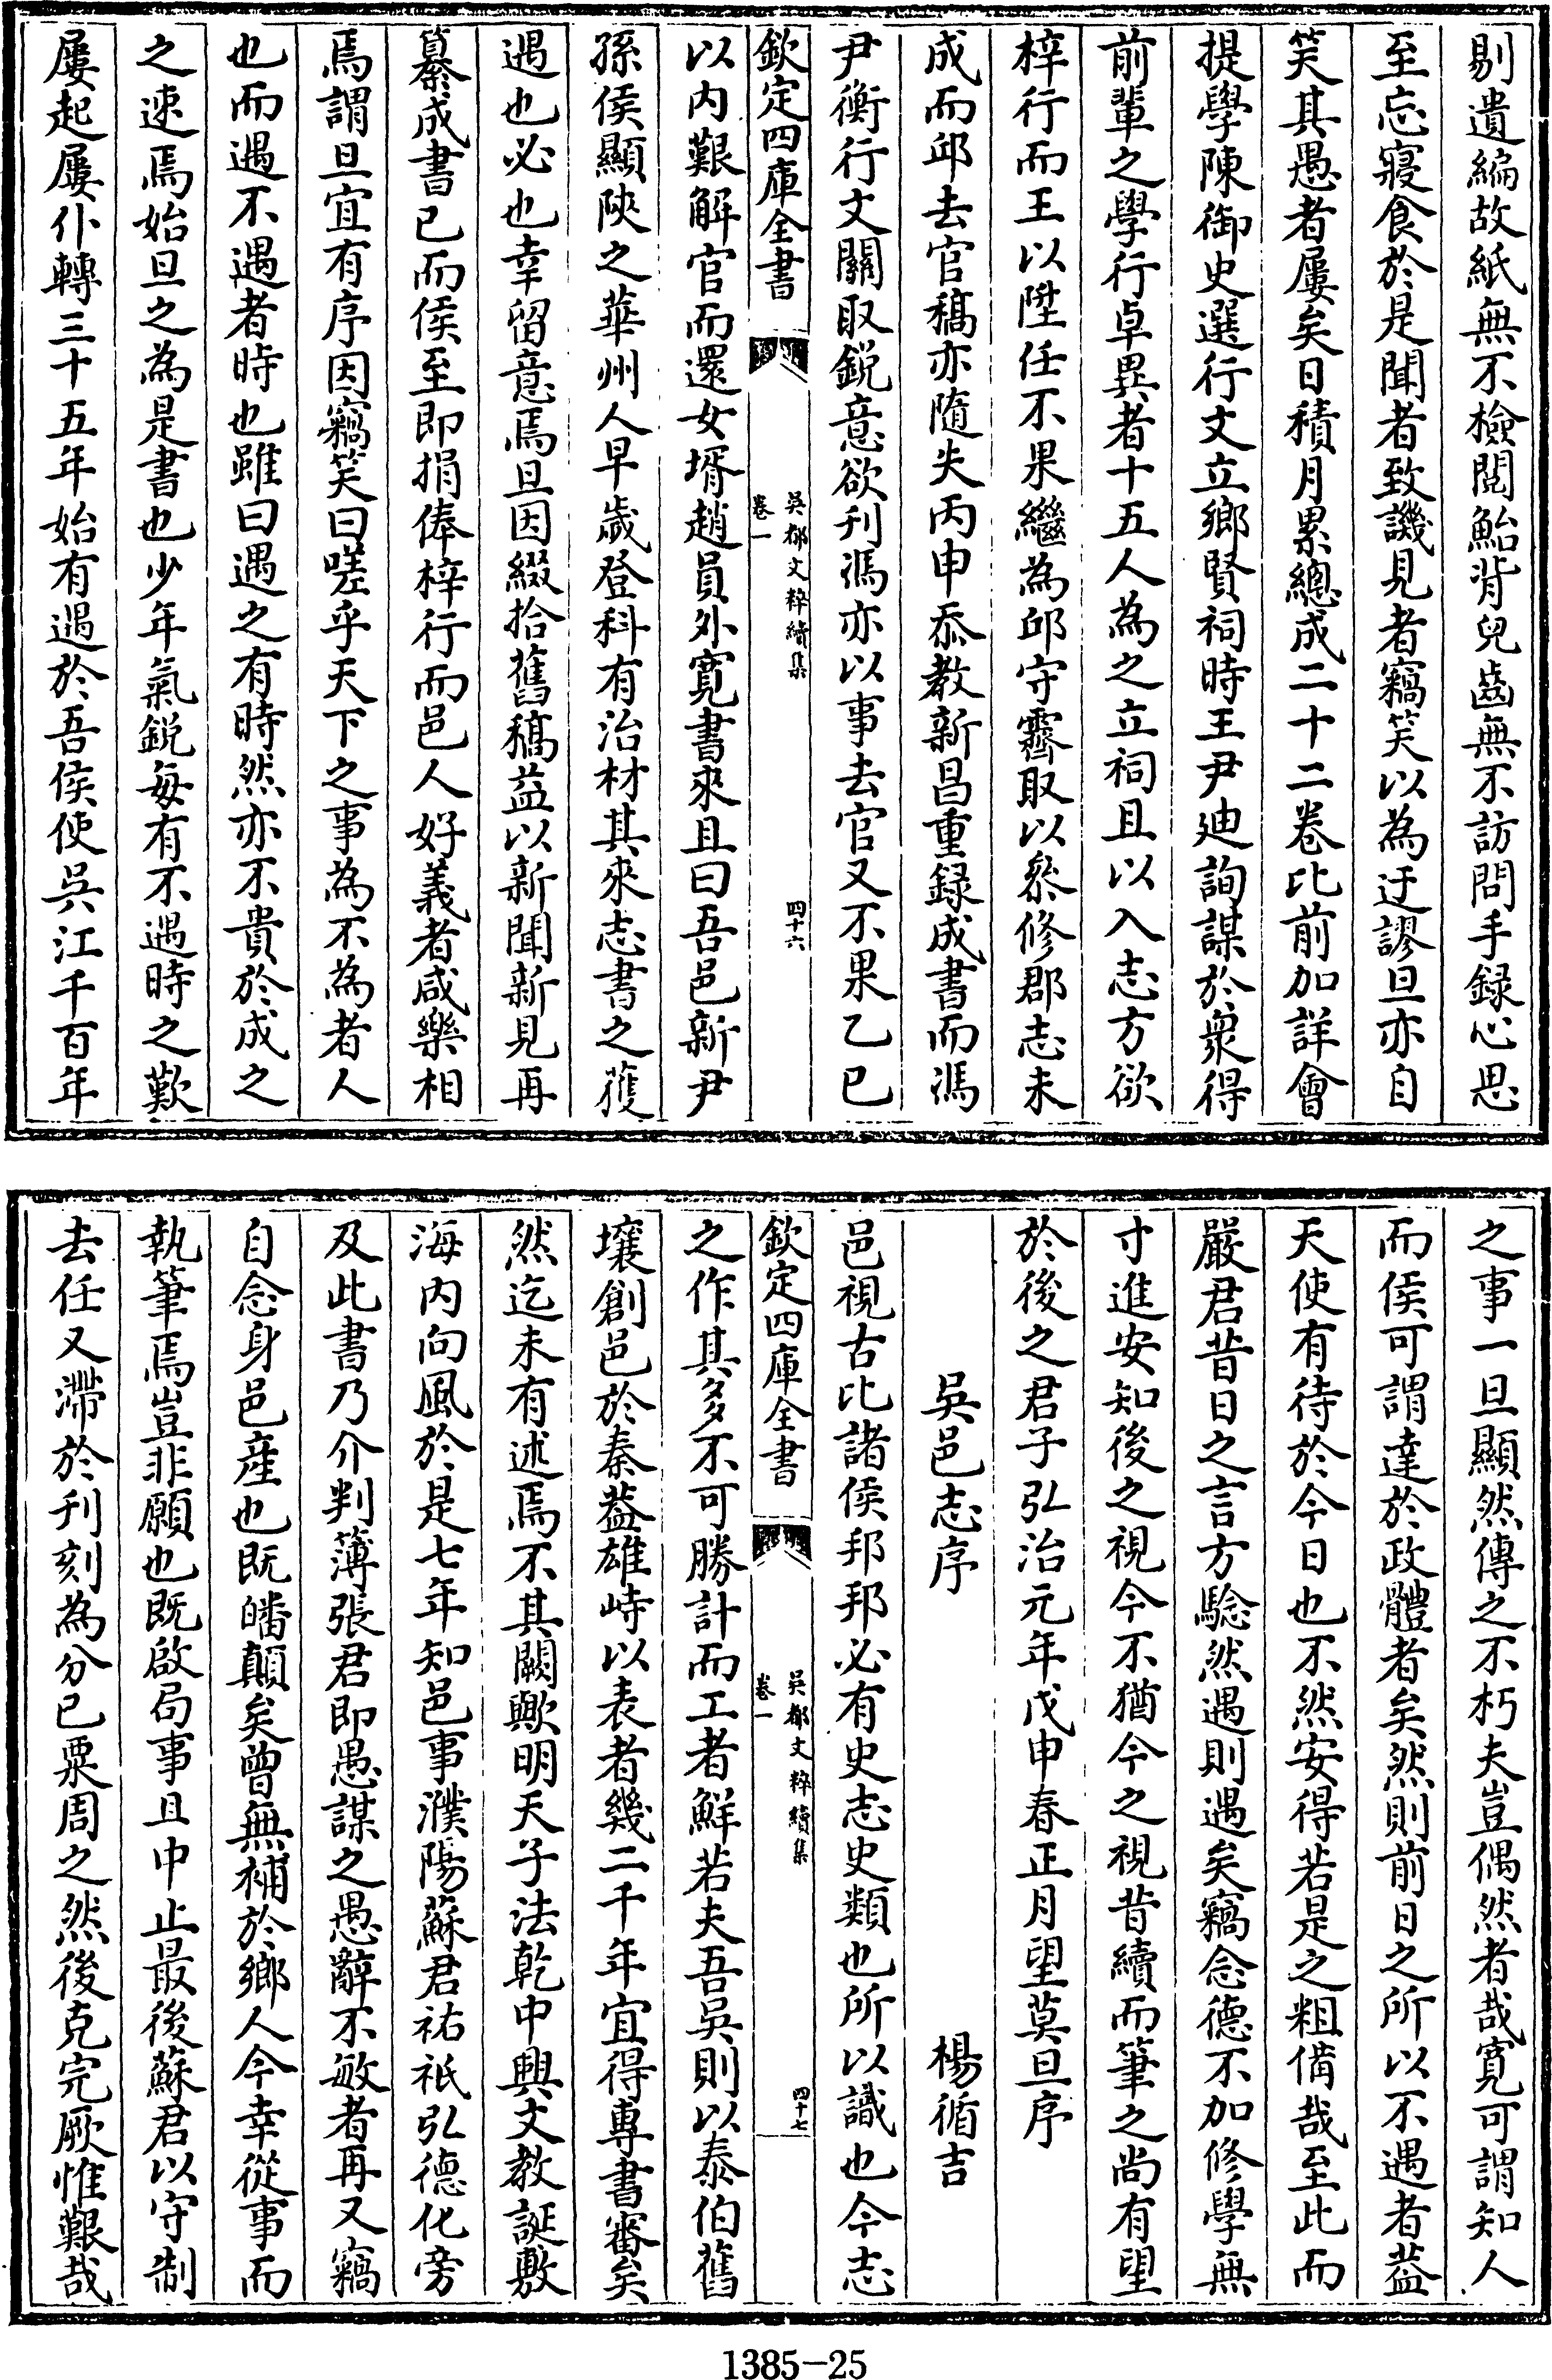 剔遺編故紙無不檢閲鮐背兒齒無不訪問手録心思
至忘寢食於是聞者致譏見者竊笑以為迂謬旦亦自
笑其愚者屢矣日積月累總成二十二卷比前加詳會
提學陳御史選行文立鄉賢祠時王尹廸詢謀於衆得
前輩之學行卓異者十五人為之立祠且以入志方欲
梓行而王以陞任不果繼為邱守霽取以叅修郡志未
成而邱去官稿亦隨失丙申忝教新昌重録成書而馮
尹衡行文關取鋭意欲刋馮亦以事去官又不果乙已
欽定四庫全書
吳都文粹續集
卷一
四十六
以内艱解官而還女壻趙員外寛書來且曰吾邑新尹
孫侯顯陜之華州人早歲登科有治材其來志書之獲
遇也必也幸留意焉旦因綴拾舊稿益以新聞新見再
纂成書已而侯至即捐俸梓行而邑人好義者咸樂相
焉謂旦宜有序因竊笑曰嗟乎天下之事為不為者人
也而遇不遇者時也雖曰遇之有時然亦不貴於成之
之速焉始旦之為是書也少年氣鋭每有不遇時之歎
屢起屢仆轉三十五年始有遇於吾侯使吳江千百年
之事一旦顯然傳之不朽夫豈偶然者哉寛可謂知人
而侯可謂達於政體者矣然則前日之所以不遇者葢
天使有待於今日也不然安得若是之粗備哉至此而
嚴君昔日之言方騐然遇則遇矣竊念德不加修學無
寸進安知後之視今不猶今之視昔續而筆之尚有望
於後之君子弘治元年戊申春正月望莫旦序
吳邑志序
楊循吉
邑視古比諸侯邦邦必有史志史類也所以識也今志
欽定四庫全書
吳都文粹續集
卷一
四十七
之作其多不可勝計而工者鮮若夫吾吳則以泰伯舊
壤創邑於秦葢雄峙以表者幾二千年宜得專書審矣
然迄未有述焉不其闕歟明天子法乾中興文教誕敷
海内向風於是七年知邑事濮陽蘇君祐祇弘德化旁
及此書乃介判簿張君即愚謀之愚辭不敏者再又竊
自念身邑産也既皤顛矣曾無補於鄉人今幸從事而
執筆焉豈非願也既啟局事且中止最後蘇君以守制
去任又滯於刋刻為分已粟周之然後克完厥惟艱哉
1385-25